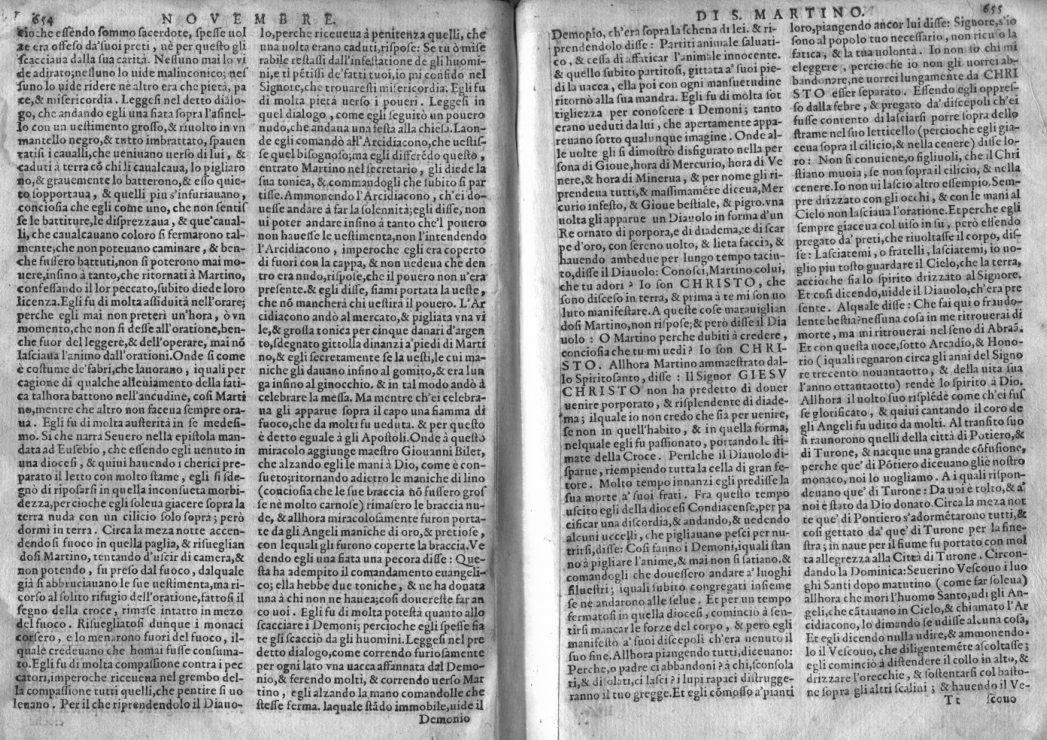 654 NOVEMBRE.
cioche essendo sommo sacerdote, spesse uol
te era offeso da'suoi preti, nè per questo gli
scacciaua dalla sua carità. Nessuno mai lo vi
de adirato; nessuno lo uide malinconico; nes
suno lo uide ridere nè altro era che pietà, pa
ce, & misericordia. Leggesi nel detto dialo-
go, che andando egli una fiata sopra l'asinel-
lo con un uestimento grosso, & riuolto in vn
mantello negro, & tutto imbrattato, spauen
tatisi i caualli, che ueniuano uerso di lui, &
caduti à terra cō chi li caualcaua, lo pigliaro
no, & grauemente lo batterono, & esso quie-
to sopportaua, & quelli piu s'infuriauano,
conciosia che egli come uno, che non sentis
se le battiture, le disprezzaua, & que'caual-
li, che caualcauano coloro si fermarono tal-
mente, che non poteuano caminare, & ben-
che fussero battuti, non si poterono mai mo-
uere, insino à tanto, che ritornati à Martino,
confessando il lor peccato, subito diede loro
licenza. Egli fu di molta assiduità nell'orare;
perche egli mai non preterì un'hora, ò vn
momento, che non si desse all'oratione, ben-
che fuor del leggere, & dell'operare, mai nō
lasciaua l'animo dall'orationi. Onde si come
è costume de'fabri, che lauorano, iquali per
cagione di qualche alleniamento della fati-
ca talhora battono nell'ancudine, cosi Marti
no, mentre che altro non faceua sempre ora-
ua. Egli fu di molta austerità in se medesi-
mo. Si che narra Seuero nella epistola man-
data ad Eusebio, che essendo egli uenuto in
una diocesi, & quiui hauendo i cherici pre-
parato il letto con molto stame, egli si sde-
gnò di riposarsi in quella inconsueta morbi-
dezza, percioche egli soleua giacere sopra la
terra nuda con un cilicio solo sopra; però
dormì in terra. Circa la meza notte accen-
dendosi fuoco in quella paglia, & risuegliandosi
dosi Martino, tentando d'uscir di camera, &
non potendo, fu preso dal fuoco, dalquale
già si abbruciauano le sue uestimenta, ma ri-
corso al solito rifugio dell'oratione, fattosi il
segno della croce, rimase intatto in mezo
del fuoco. Risuegliatosi dunque i monaci
corsero, e lo menarono fuori del fuoco, il-
quale credeuano che homai fusse consuma-
to. Egli fu di molta compassione contra i pec
catori, imperoche riceueua nel grembo del-
la compassione tutti quelli, che pentire si uo
leuano. Per il che riprendendolo il Diauo-
lo, perche riceueua à penitenza quelli, che
una uolta erano caduti, rispose: Se tu ò mise
rabile restassi dall'infestatione de gli huomi-
ni, e ti pētissi de'fatti tuoi, io mi confido nel
Signore, che trouaresti misericordia. Egli fu
di molta pietà uerso i poueri. Leggesi in
quel dialogo, come egli seguitò un pouero
nudo, che andaua una festa alla chiesa. Laon-
de egli comandò all'Arcidiacono, che uestis-
se quel bisognoso; ma egli differēdo questo,
entrato Martino nel secretario, gli diede la
sua tonica, & commandogli che subito si par
tisse. Ammonendo l'Arcidiacono, ch'ei do-
uesse andare à far la solennità; egli disse, non
ui poter andare insino à tanto che'l pouero
non hauesse le uestimenta, non l'intendendo
l'Arcidiacono, imperoche egli era coperto
di fuori con la cappa, & non uedeua che den
tro era nudo, rispose, che il pouero non u'era
presente. & egli disse, siami portata la ueste,
che nō mancherà chi uestira il pouero. L'Ar
cidiacono andò al mercato, & pigliata vna vi
le, & grossa tonica per cinque danari d'argen
to, sdegnato gittolla dinanzi a'piedi di Marti
no, & egli secretamente se la uestì, le cui ma-
niche gli dauano insino al gomito, & era lun
ga insino al ginocchio. & in tal modo andò à
celebrare la messa. Ma mentre ch'ei celebra-
ua gli apparue sopra il capo una fiamma di
fuoco, che da molti fu ueduta. & per questo
è detto eguale à gli Apostoli. Onde à questo
miracolo aggiunge maestro Giouanni Bilet,
che alzando egli le mani à Dio, come è con-
sueto; ritornando adietro le maniche di lino
(conciosia che le sue braccia nō fussero gros
se nè molto carnose) rimasero le braccia nu-
de, & allhora miracolosamente furon porta-
te da gli Angeli maniche di oro, & pretiose,
con lequali gli furono coperte le braccia. Ve
dendo egli una fiata una pecora disse: Que-
sta ha adempito il comandamento euangeli-
co; ella hebbe due toniche, & ne ha donata
una à chi non ne haueа; cosi douereste far an
co uoi. Egli fu di molta potestà quanto allo
scacciare i Demoni; percioche egli spesse fia
te gli scacciò da gli huomini. Leggesi nel pre
detto dialogo, come correndo furiosamente
per ogni lato vna uacca affannata dal Demo-
nio, & ferendo molti, & correndo uerso Mar
tino, egli alzando la mano comandolle che
stesse ferma. laquale stādo immobile, uide il
Demonio
DI S. MARTINO. 655
Demonio, ch'era sopra la schena di lei. & ri-
prendendolo disse: Partiti animale saluati-
co, & cessa di affaticar l'animale innocente.
& quello subito partitosi, gittata a' suoi pie-
di la uacca, ella poi con ogni mansuetudine
ritornò alla sua mandra. Egli fu di molta sot
tigliezza per conoscere i Demoni; tanto
erano ueduti da lui, che apertamente appa-
reuano sotto qualunque imagine. Onde al-
le uolte gli si dimostrò disfigurato nella per
sona di Gioue, hora di Mercurio, hora di Ve
nere, & hora di Minerua, & per nome gli ri-
prendeua tutti, & massimamēte diceua, Mer
curio infesto, & Gioue bestiale, & pigro. vna
uolta gli apparue un Diauolo in forma d'un
Re ornato di porpora, e di diadema, e di scar
pe d'oro, con sereno uolto, & lieta faccia, &
hauendo ambedue per lungo tempo taciu-
to, disse il Diauolo: Conosci, Martino colui,
che tu adori? Io son CHRISTO, che
sono disceso in terra, & prima à te mi son uo
luto manifestare. A queste cose marauiglian
dosi Martino, non rispose; & però disse il Dia
uolo: O Martino perche dubiti à credere,
conciosia che tu mi uedi? Io son CHRI-
STO. Allhora Martino ammaestrato dal-
lo Spirito santo, disse: Il Signor GIESV
CHRISTO non ha predetto di douer
uenire porporato, & risplendente di diade-
ma; ilquale io non credo che sia per uenire,
se non in quell'habito, & in quella forma,
nelquale egli fu passionato, portando le sti-
mate della Croce. Perilche il Diauolo di-
sparue, riempiendo tutta la cella di gran fe-
tore. Molto tempo innanzi egli predisse la
sua morte a' suoi frati. Fra questo tempo
uscito egli della diocesi Condiacense, per pa
cificar una discordia, & andando, & uedendo
alcuni uccelli, che pigliauano pesci per nu-
trirsi, disse: Cosi fanno i Demoni, iquali stan
no à pigliare l'anime, & mai non si satiano. &
comandogli che douessero andare a' luoghi
siluestri; iquali subito congregati insieme
se ne andarono alle selue. Et per un tempo
fermatosi in quella diocesi, cominciò à sen-
tirsi mancar le forze del corpo, & però egli
manifestò a' suoi discepoli ch'era uenuto il
suo fine. Allhora piangendo tutti, diceuano:
Perche, o padre ci abbandoni? à chi, sconsola
ti, & disolati, ci lasci? i lupi rapaci distrugge-
ranno il tuo gregge. Et egli cōmosso a'pianti
loro, piangendo ancor lui disse: Signore, s'io
sono al popolo tuo necessario, non ricuso la
fatica, & la tua uolontà. Io non so chi mi
eleggere, percioche io non gli uorrei ab-
bandonare, ne uorrei lungamente da CHRI
STO esser separato. Essendo egli oppres-
so dalla febre, & pregato da' discepoli ch'ei
fusse contento di lasciarsi porre sopra dello
strame nel suo letticello (percioche egli gia-
ceua sopra il cilicio, & nella cenere) disse lo-
ro: Non si conuiene, o figliuoli, che il Chri
stiano muoia, se non sopra il cilicio, & nella
cenere. Io non ui lascio altro essempio. Sem-
pre drizzato con gli occhi, & con le mani al
Cielo non lasciaua l'oratione. Et perche egli
sempre giaceua col uiso in su, però essendo
pregato da' preti, che riuoltasse il corpo, dis-
se: Lasciatemi, o fratelli, lasciatemi, io uo-
glio piu tosto guardare il Cielo, che la terra,
accioche sia lo spirito drizzato al Signore.
Et cosi dicendo, uidde il Diauolo, ch'era pre
sente. Alquale disse: Che fai qui o fraudo-
lente bestia? nessuna cosa in me ritrouerai di
morte, ma mi ritrouerai nel seno di Abraā.
Et con questa uoce, sotto Arcadio, & Hono-
rio (iquali regnaron circa gli anni del Signo
re trecento nouantaotto, & della uita sua
l'anno ottantaotto) rendè lo spirito à Dio.
Allhora il uolto suo risplēdè come ch'ei fus
se glorificato, & quiui cantando il coro de
gli Angeli fu udito da molti. Al transito suo
si raunorono quelli della città di Potiero, &
di Turone, & nacque una grande cōfusione,
perche que' di Pōtiero diceuano gliè nostro
monaco, noi lo uogliamo. A i quali rispon-
denano que' di Turone: Da uoi è tolto, & à
noi è stato da Dio donato. Circa la meza not
te que' di Pontiero s'adormētarono tutti, &
cosi gettato da' que' di Turone per la fine-
stra; in naue per il fiume fu portato con mol
ta allegrezza alla Città di Turone. Circon-
dando la Dominica: Seuerino Vescouo i luo
ghi Santi dopo matutino (come far soleua)
allhora che morì l'huomo Santo, udì gli An-
geli, che cātauano in Cielo, & chiamato l'Ar
cidiacono, lo dimandò se udisse alcuna cosa,
Et egli dicendo nulla udire, & ammonendo-
lo il Vescouo, che diligentemēte ascoltasse;
egli cominciò à distendere il collo in alto, &
drizzare l'orecchie, & sostentarsi col basto-
ne sopra gli altri scalini; & hauendo il Ve-
Tt scouo